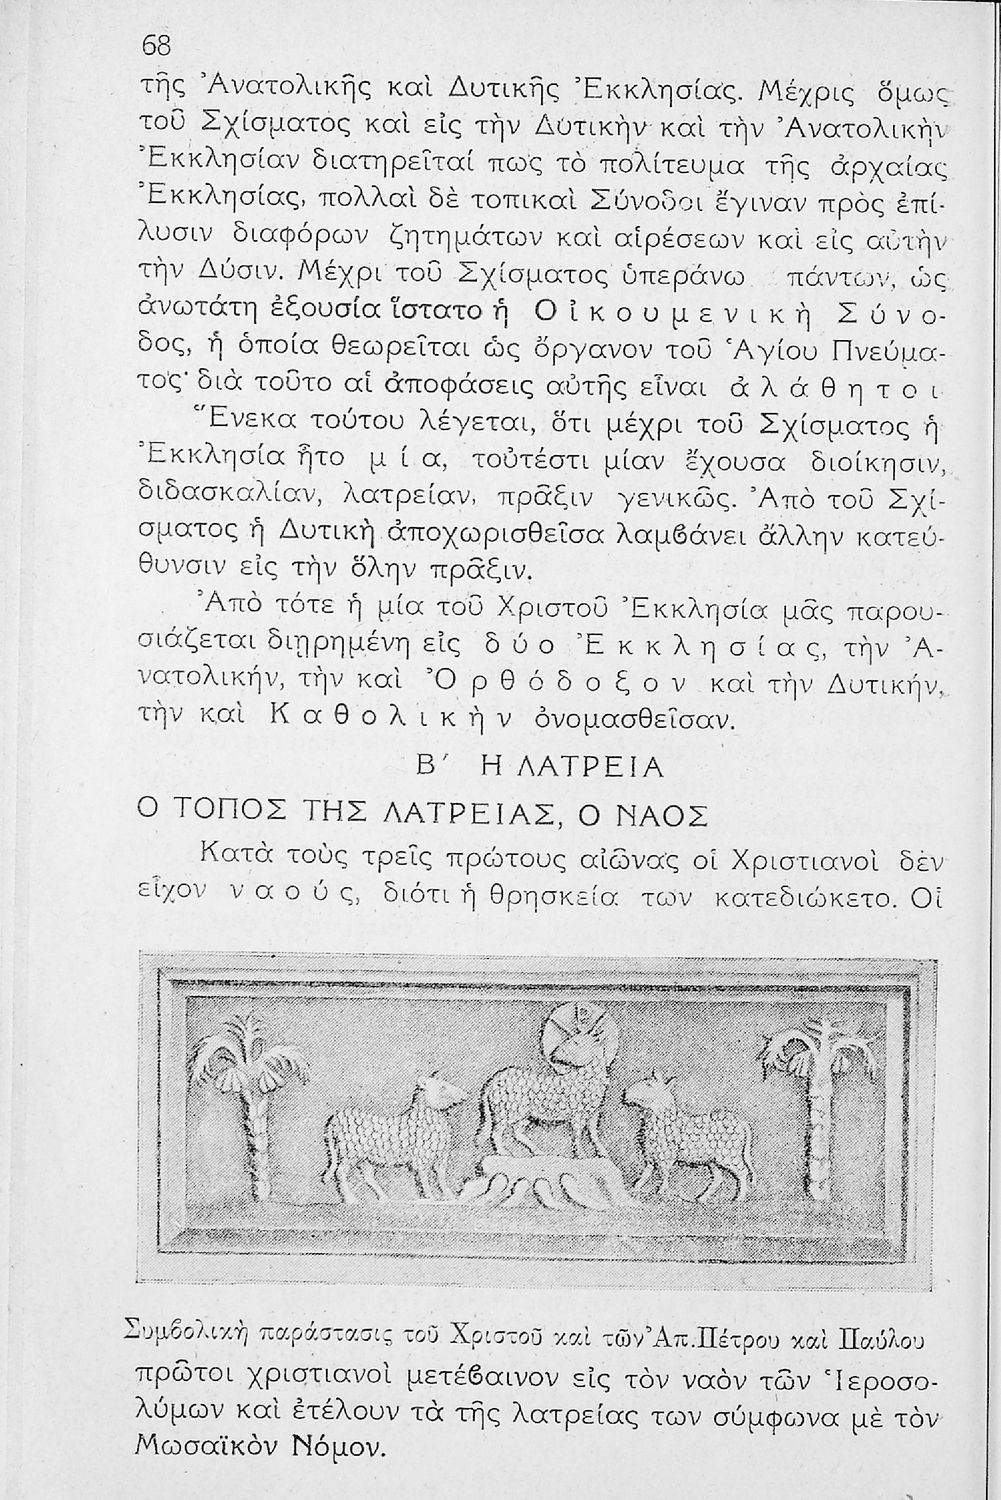 68
τῆς Ἀνατολικῆς καὶ Δυτικῆς Ἐκκλησίας. Μέχρις ὅμως
τοῦ Σχίσματος καὶ εἰς τὴν Δυτικὴν καὶ τὴν Ἀνατολικὴν
Ἐκκλησίαν διατηρεῖταί πως τὸ πολίτευμα τῆς ἀρχαίας
Ἐκκλησίας, πολλαὶ δὲ τοπικαὶ Σύνοδοι ἔγιναν πρὸς ἐπί-
λυσιν διαφόρων ζητημάτων καὶ αἱρέσεων καὶ εἰς αὐτὴν
τὴν Δύσιν. Μέχρι τοῦ Σχίσματος ὑπεράνω πάντων, ὡς
ἀνωτάτη ἐξουσία ἵστατο ἡ Ο ἰ κ ο υ μ ε ν ι κ ὴ Σ ύ ν ο-
δος, ἡ ὁποία θεωρεῖται ὡς ὄργανον τοῦ Ἁγίου Πνεύμα-
τος· διὰ τοῦτο αἱ ἀποφάσεις αὐτῆς εἶναι ἀ λ ά θ η τ ο ι
Ἕνεκα τούτου λέγεται, ὅτι μέχρι τοῦ Σχίσματος ἡ
Ἐκκλησία ἦτο μ ί α, τοὐτέστι μίαν ἔχουσα διοίκησιν,
διδασκαλίαν, λατρείαν, πρᾶξιν γενικῶς. Ἀπὸ τοῦ Σχί-
σματος ἡ Δυτικὴ ἀποχωρισθεῖσα λαμβάνει ἄλλην κατεύ-
θυνσιν εἰς τὴν ὅλην πρᾶξιν.
Ἀπὸ τότε ἡ μία τοῦ Χριστοῦ Ἐκκλησία μᾶς παρου-
σιάζεται διῃρημένη εἰς δ ύ ο Ἐ κ κ λ η σ ί α ς, τὴν Ἀ-
νατολικήν, τὴν καὶ Ὀ ρ θ ό δ ο ξ ο ν καὶ τὴν Δυτικήν,
τὴν καὶ Κ α θ ο λ ι κ ὴ ν ὀνομασθεῖσαν.
Β΄ Η ΛΑΤΡΕΙΑ
Ο ΤΟΠΟΣ ΤΗΣ ΛΑΤΡΕΙΑΣ, Ο ΝΑΟΣ
Κατὰ τοὺς τρεῖς πρώτους αἰῶνας οἱ Χριστιανοὶ δὲν
εἶχον ν α ο ύ ς, διότι ἡ θρησκεία των κατεδιώκετο. Οἱ
Συμβολικὴ παράστασις τοῦ Χριστοῦ καὶ τῶν Ἀπ. Πέτρου καὶ Παύλου
πρῶτοι χριστιανοὶ μετέβαινον εἰς τὸν ναὸν τῶν Ἱεροσο-
λύμων καὶ ἐτέλουν τὰ τῆς λατρείας των σύμφωνα μὲ τὸν
Μωσαϊκὸν Νόμον.